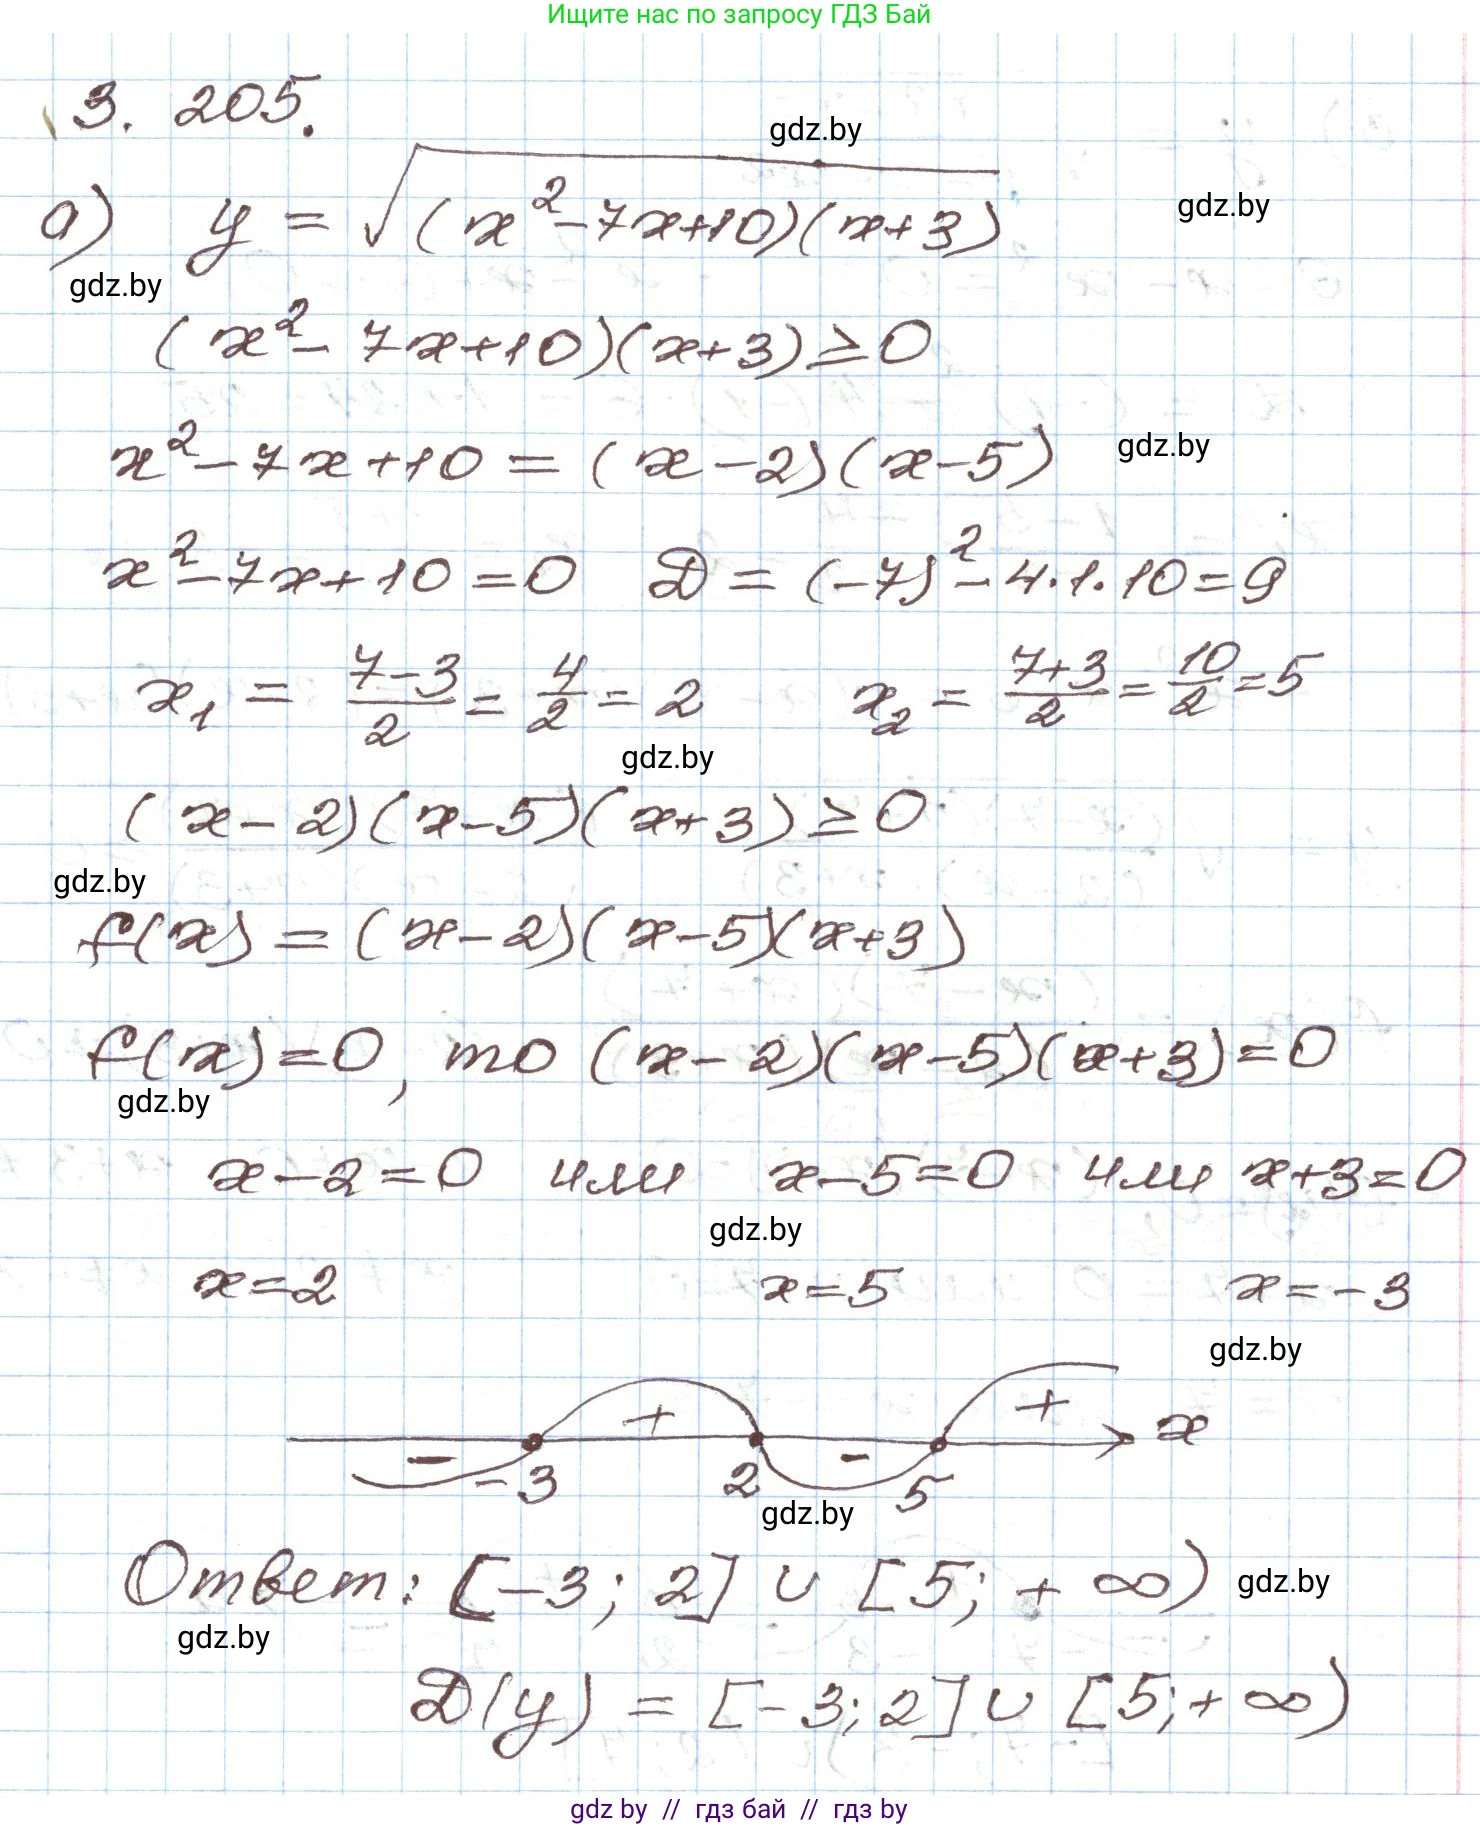 Ищите нас по запросу ГДЗ Бай
3. 205.
gdz.by
а) y = √(x² - 7x + 10)(x + 3)
gdz.by
gdz.by
(x² - 7x + 10)(x + 3) ≥ 0
x² - 7x + 10 = (x - 2)(x - 5)
gdz.by
x² - 7x + 10 = 0 D = (-7)² - 4·1·10 = 9
x₁ = (7-3)/2 = 4/2 = 2 x₂ = (7+3)/2 = 10/2 = 5
gdz.by
(x - 2)(x - 5)(x + 3) ≥ 0
gdz.by
f(x) = (x - 2)(x - 5)(x + 3)
f(x) = 0, то (x - 2)(x - 5)(x + 3) = 0
gdz.by
x - 2 = 0 или x - 5 = 0 или x + 3 = 0
gdz.by
x = 2 x = 5 x = -3
gdz.by
- + - + x
-3 2 5
gdz.by
Ответ: [-3; 2] ∪ [5; +∞)
gdz.by
gdz.by
D(y) = [-3; 2] ∪ [5; +∞)
gdz by // гдз бай // гдз by